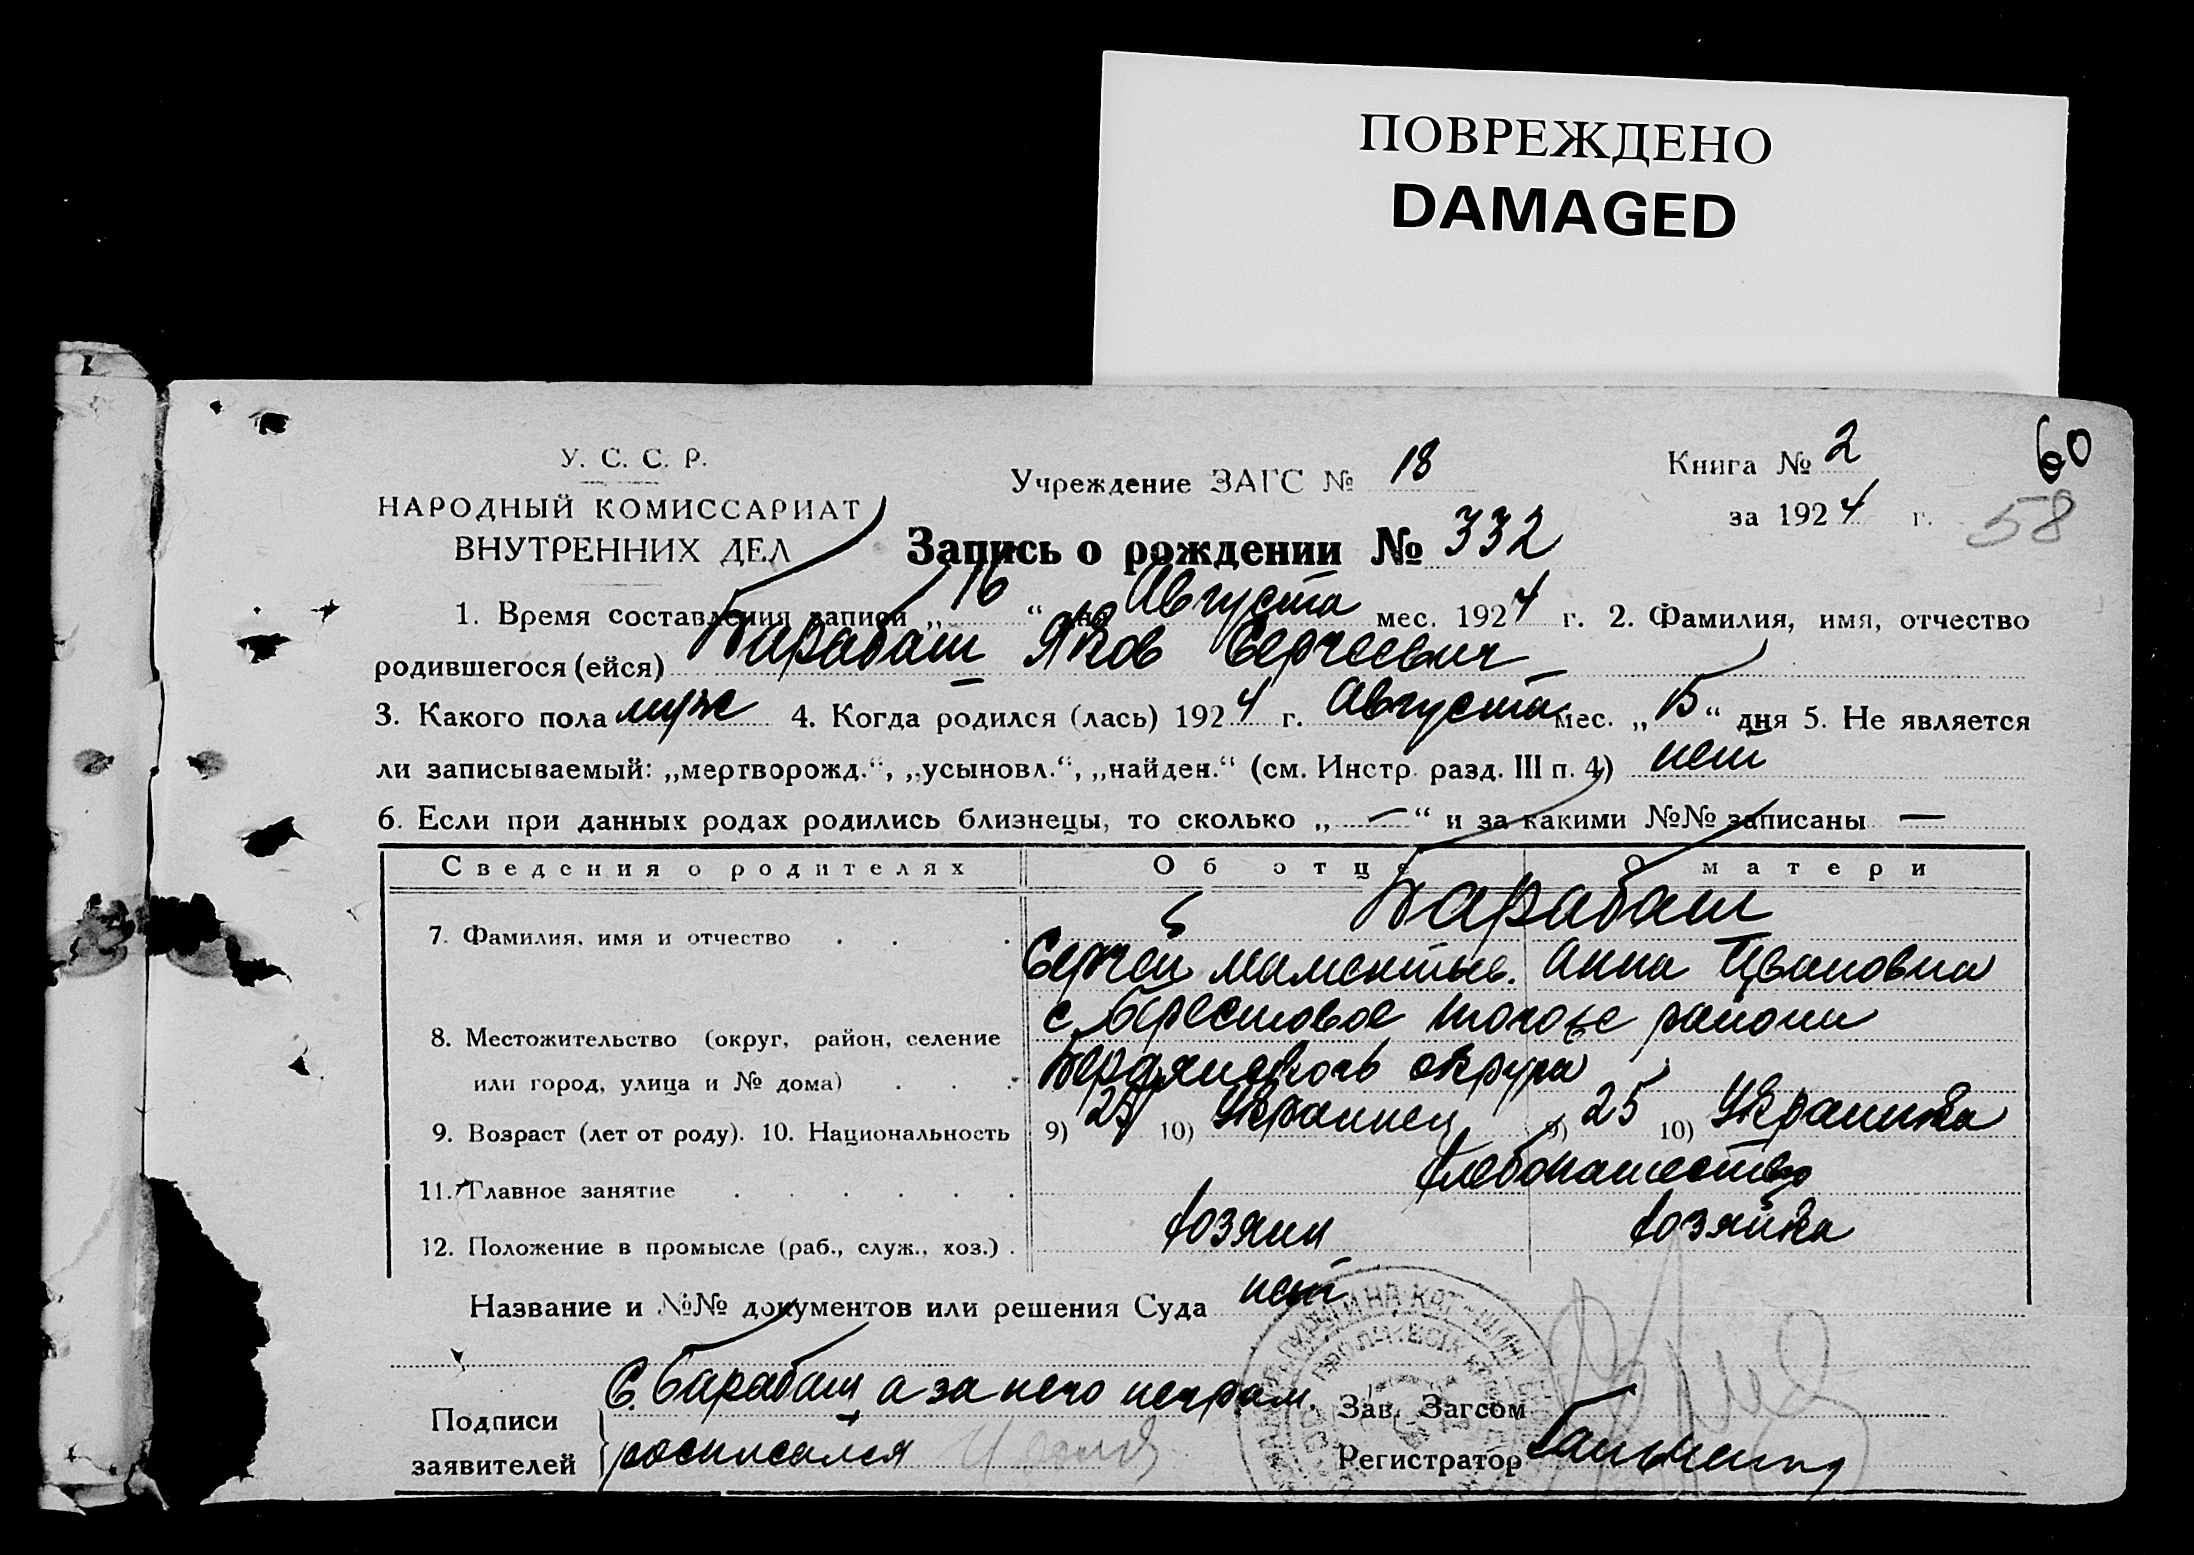 ПОВРЕЖДЕНО
DAMAGED
60
58
У. С. С. Р.
НАРОДНЫЙ КОМИССАРИАТ
ВНУТРЕННИХ ДЕЛ
Учреждение ЗАГС № 18
Книга № 2
за 1924 г.
Запись о рождении № 332
1. Время составления записи „16“ дня Августа мес. 1924 г. 2. Фамилия, имя, отчество
родившегося (ейся) Барабаш Яков Сергеевич
3. Какого пола муж 4. Когда родился (лась) 1924 г. Августа мес. „15“ дня 5. Не является
ли записываемый: „мертворожд.“, „усыновл.“, „найден.“ (см. Инстр. разд. III п. 4) нет
6. Если при данных родах родились близнецы, то сколько „—“ и за какими №№ записаны —
Сведения о родителях Об отце О матери
7. Фамилия, имя и отчество Барабаш
Сергей Маментьев. Анна Ивановна
8. Местожительство (округ, район, селение с. Берестовое того же района
или город, улица и № дома) Бердянского округа
9. Возраст (лет от роду). 10. Национальность 9) 25 10) Украинец 9) 25 10) Украинка
11. Главное занятие хлебопашество
12. Положение в промысле (раб., служ., хоз.) хозяин хозяйка
Название и №№ документов или решения Суда нет
Подписи заявителей С. Барабаш а за него неграм.
росписался
Зав. Загсом
Регистратор